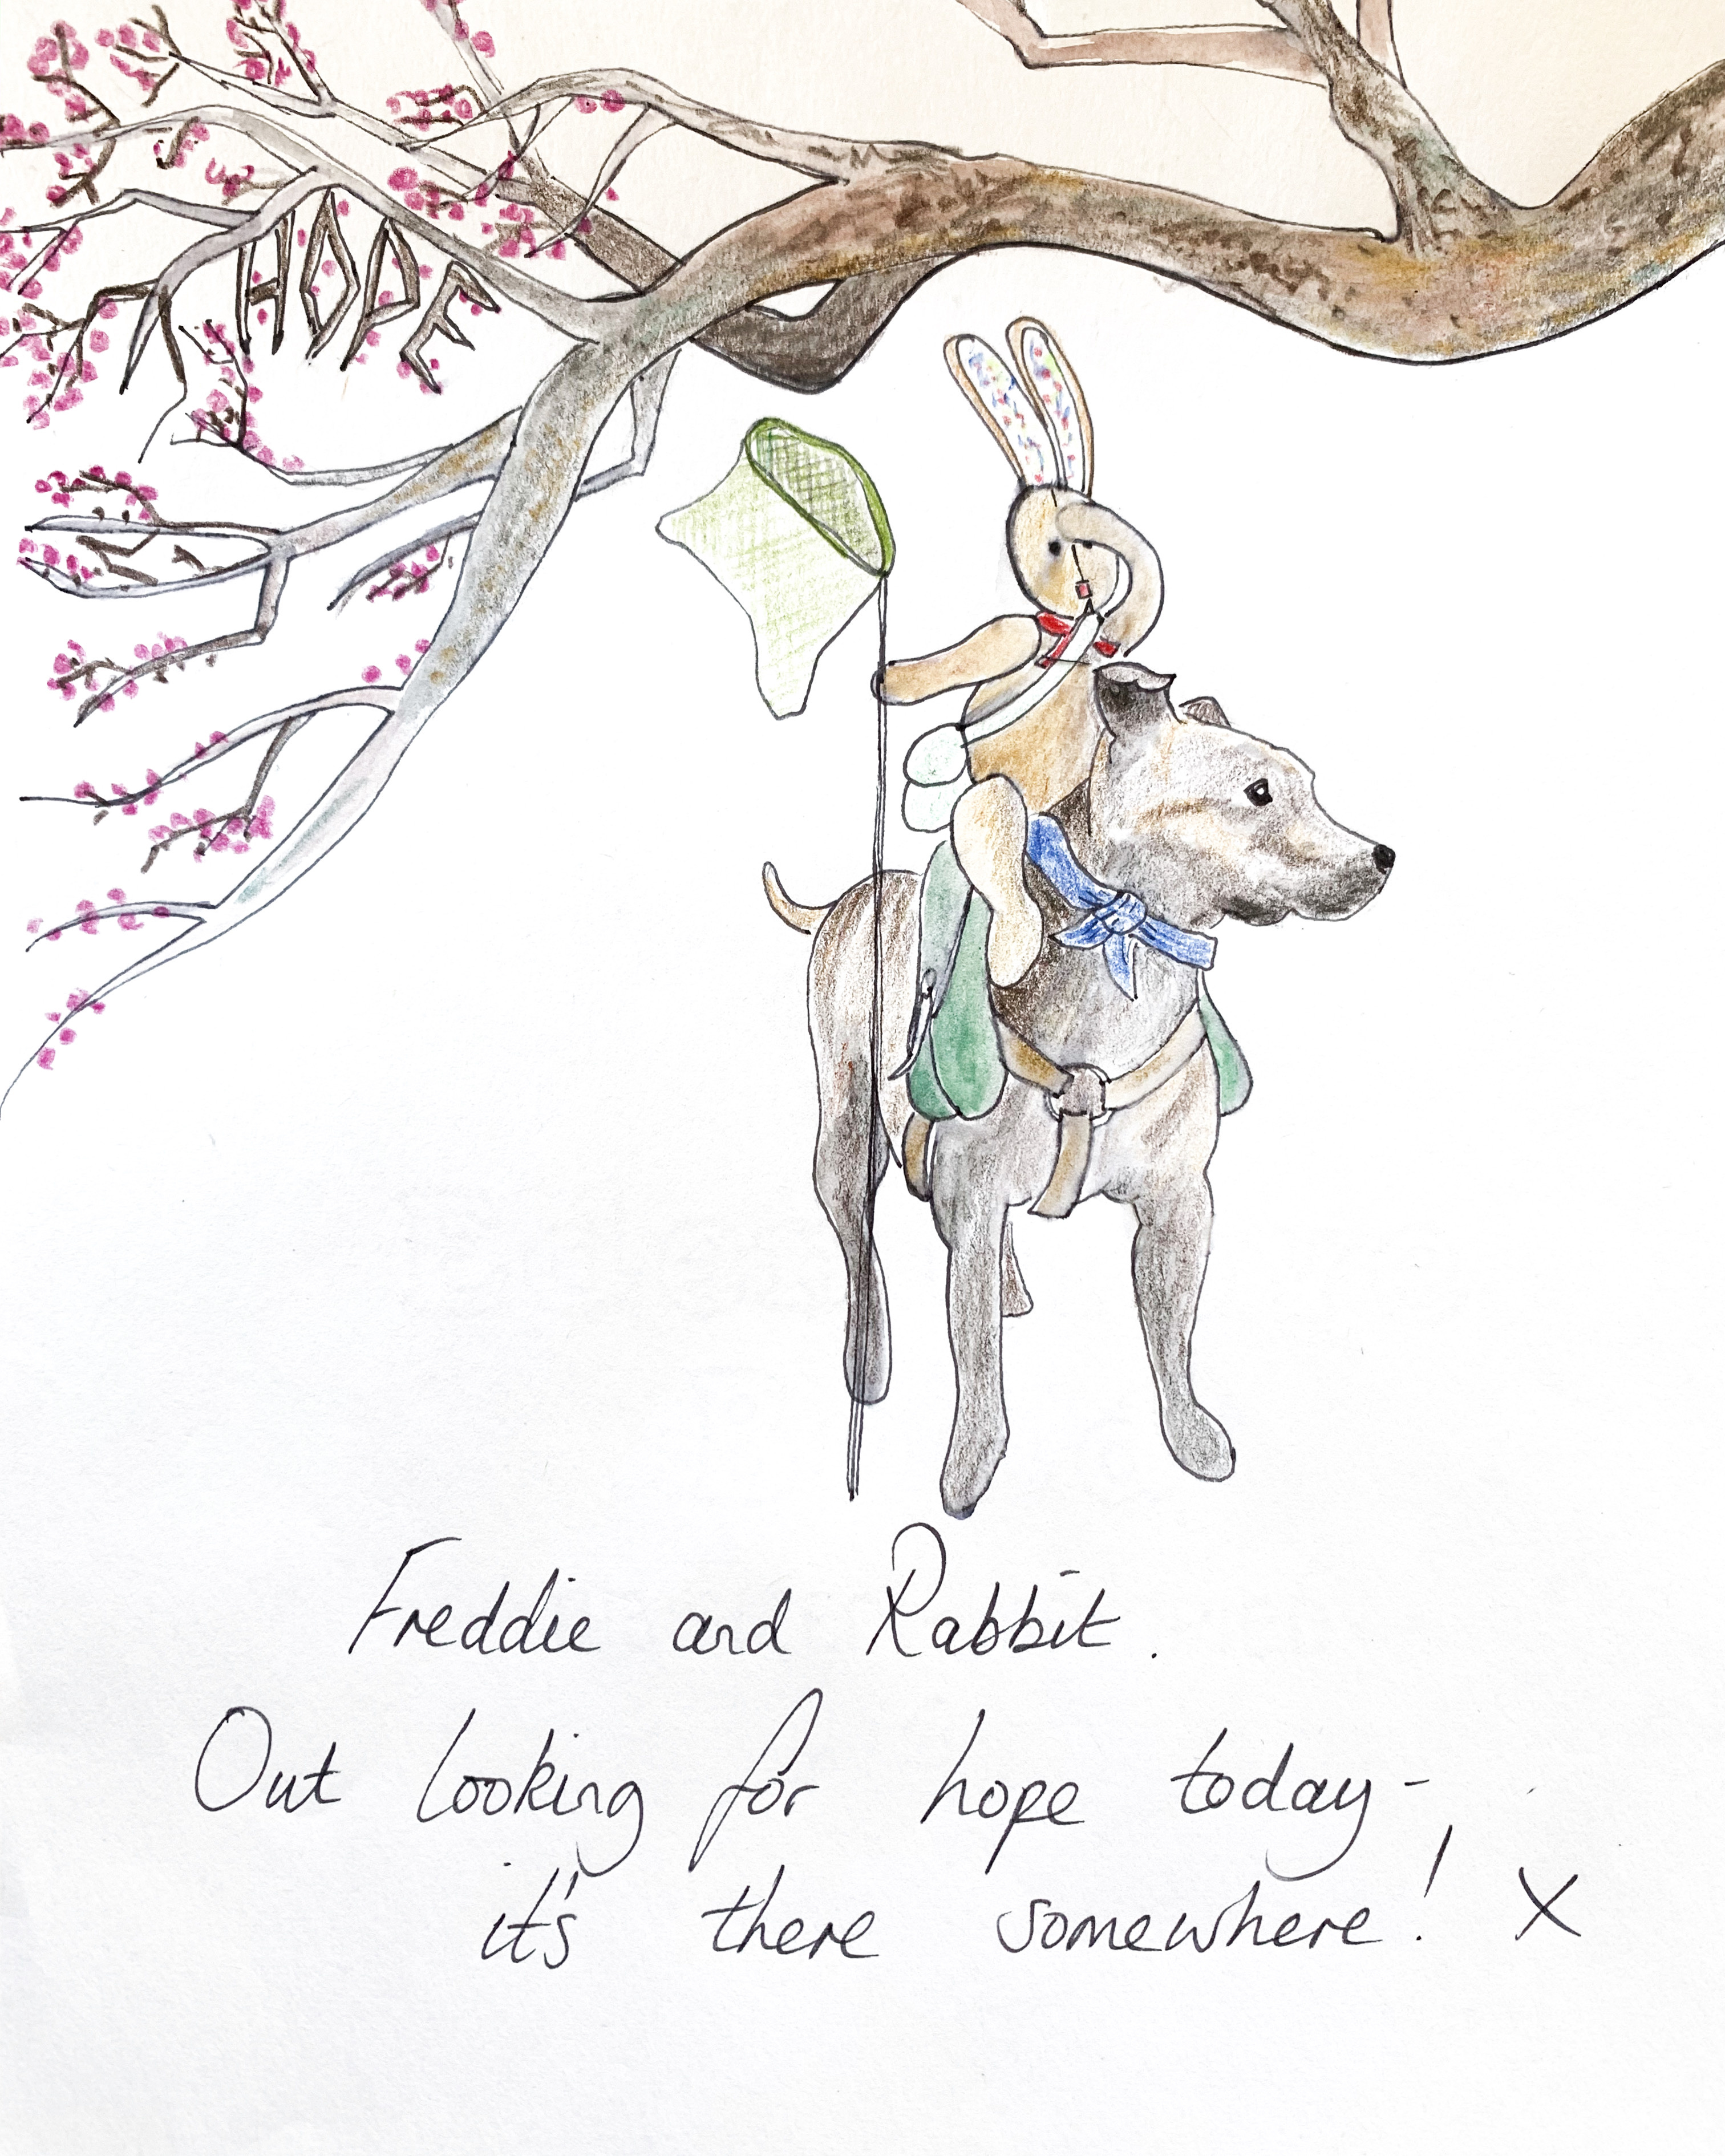 HOPE
Freddie and Rabbit.
Out looking for hope today-
it's there somewhere! X